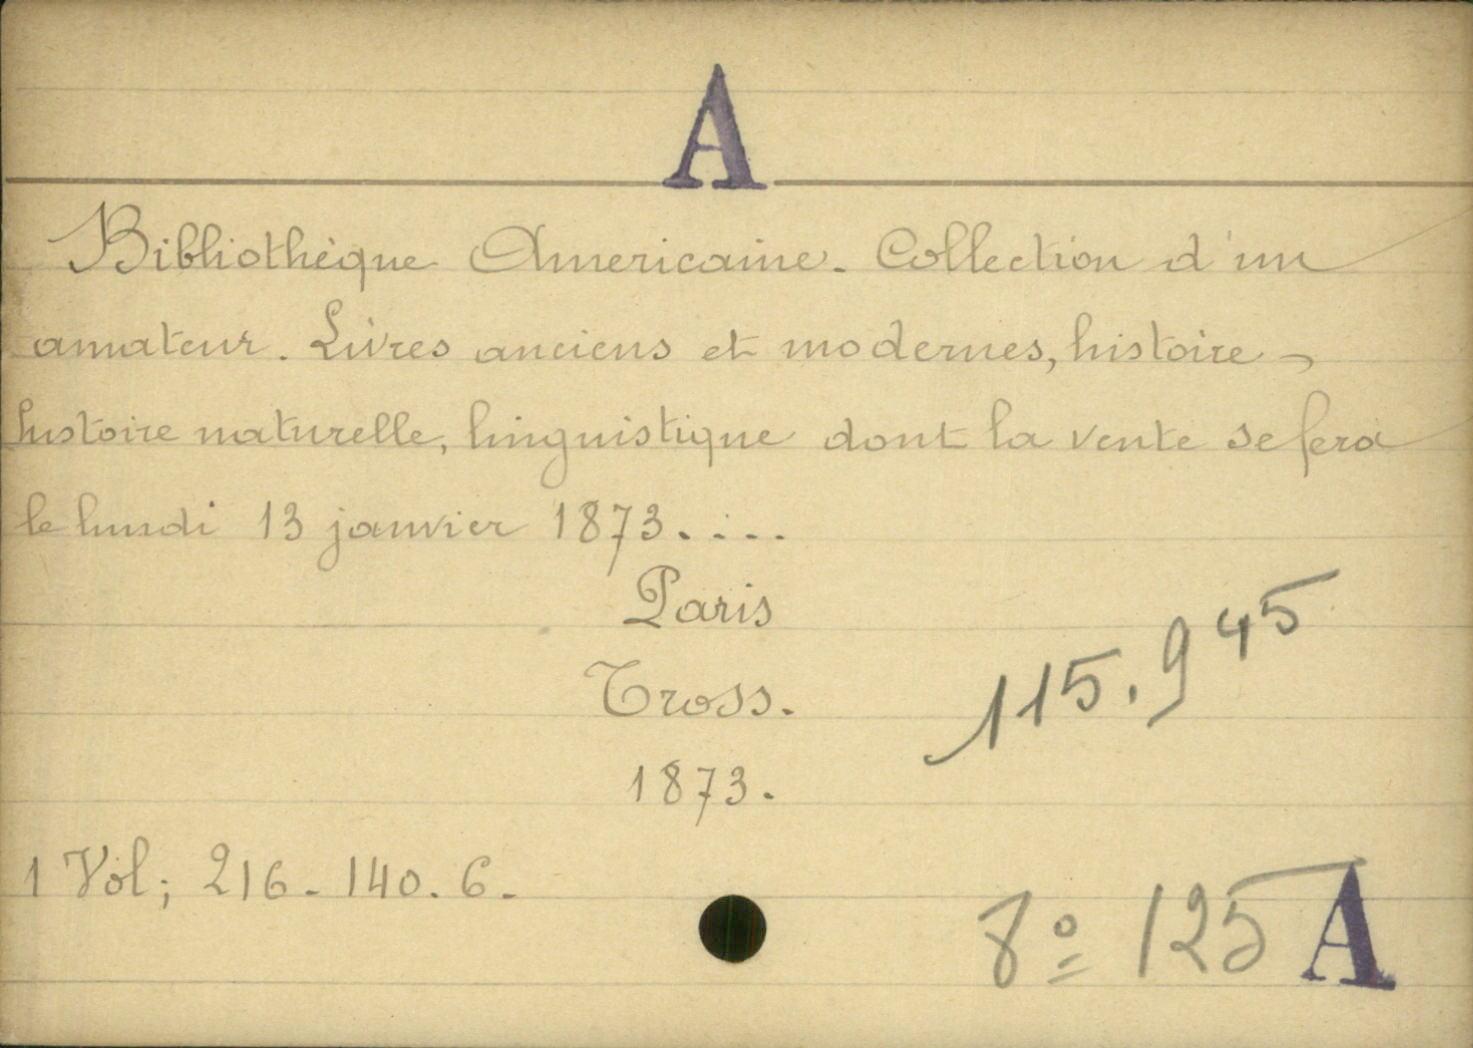 A
Bibliothèque Americaine. Collection d'un
amateur. Livres anciens et modernes, histoire -
histoire naturelle, linguistique dont la vente se fera
le lundi 13 janvier 1873....
Paris
Tross.
115.945
1873.
1 Vol; 216. 140. 6.
8º 125 A